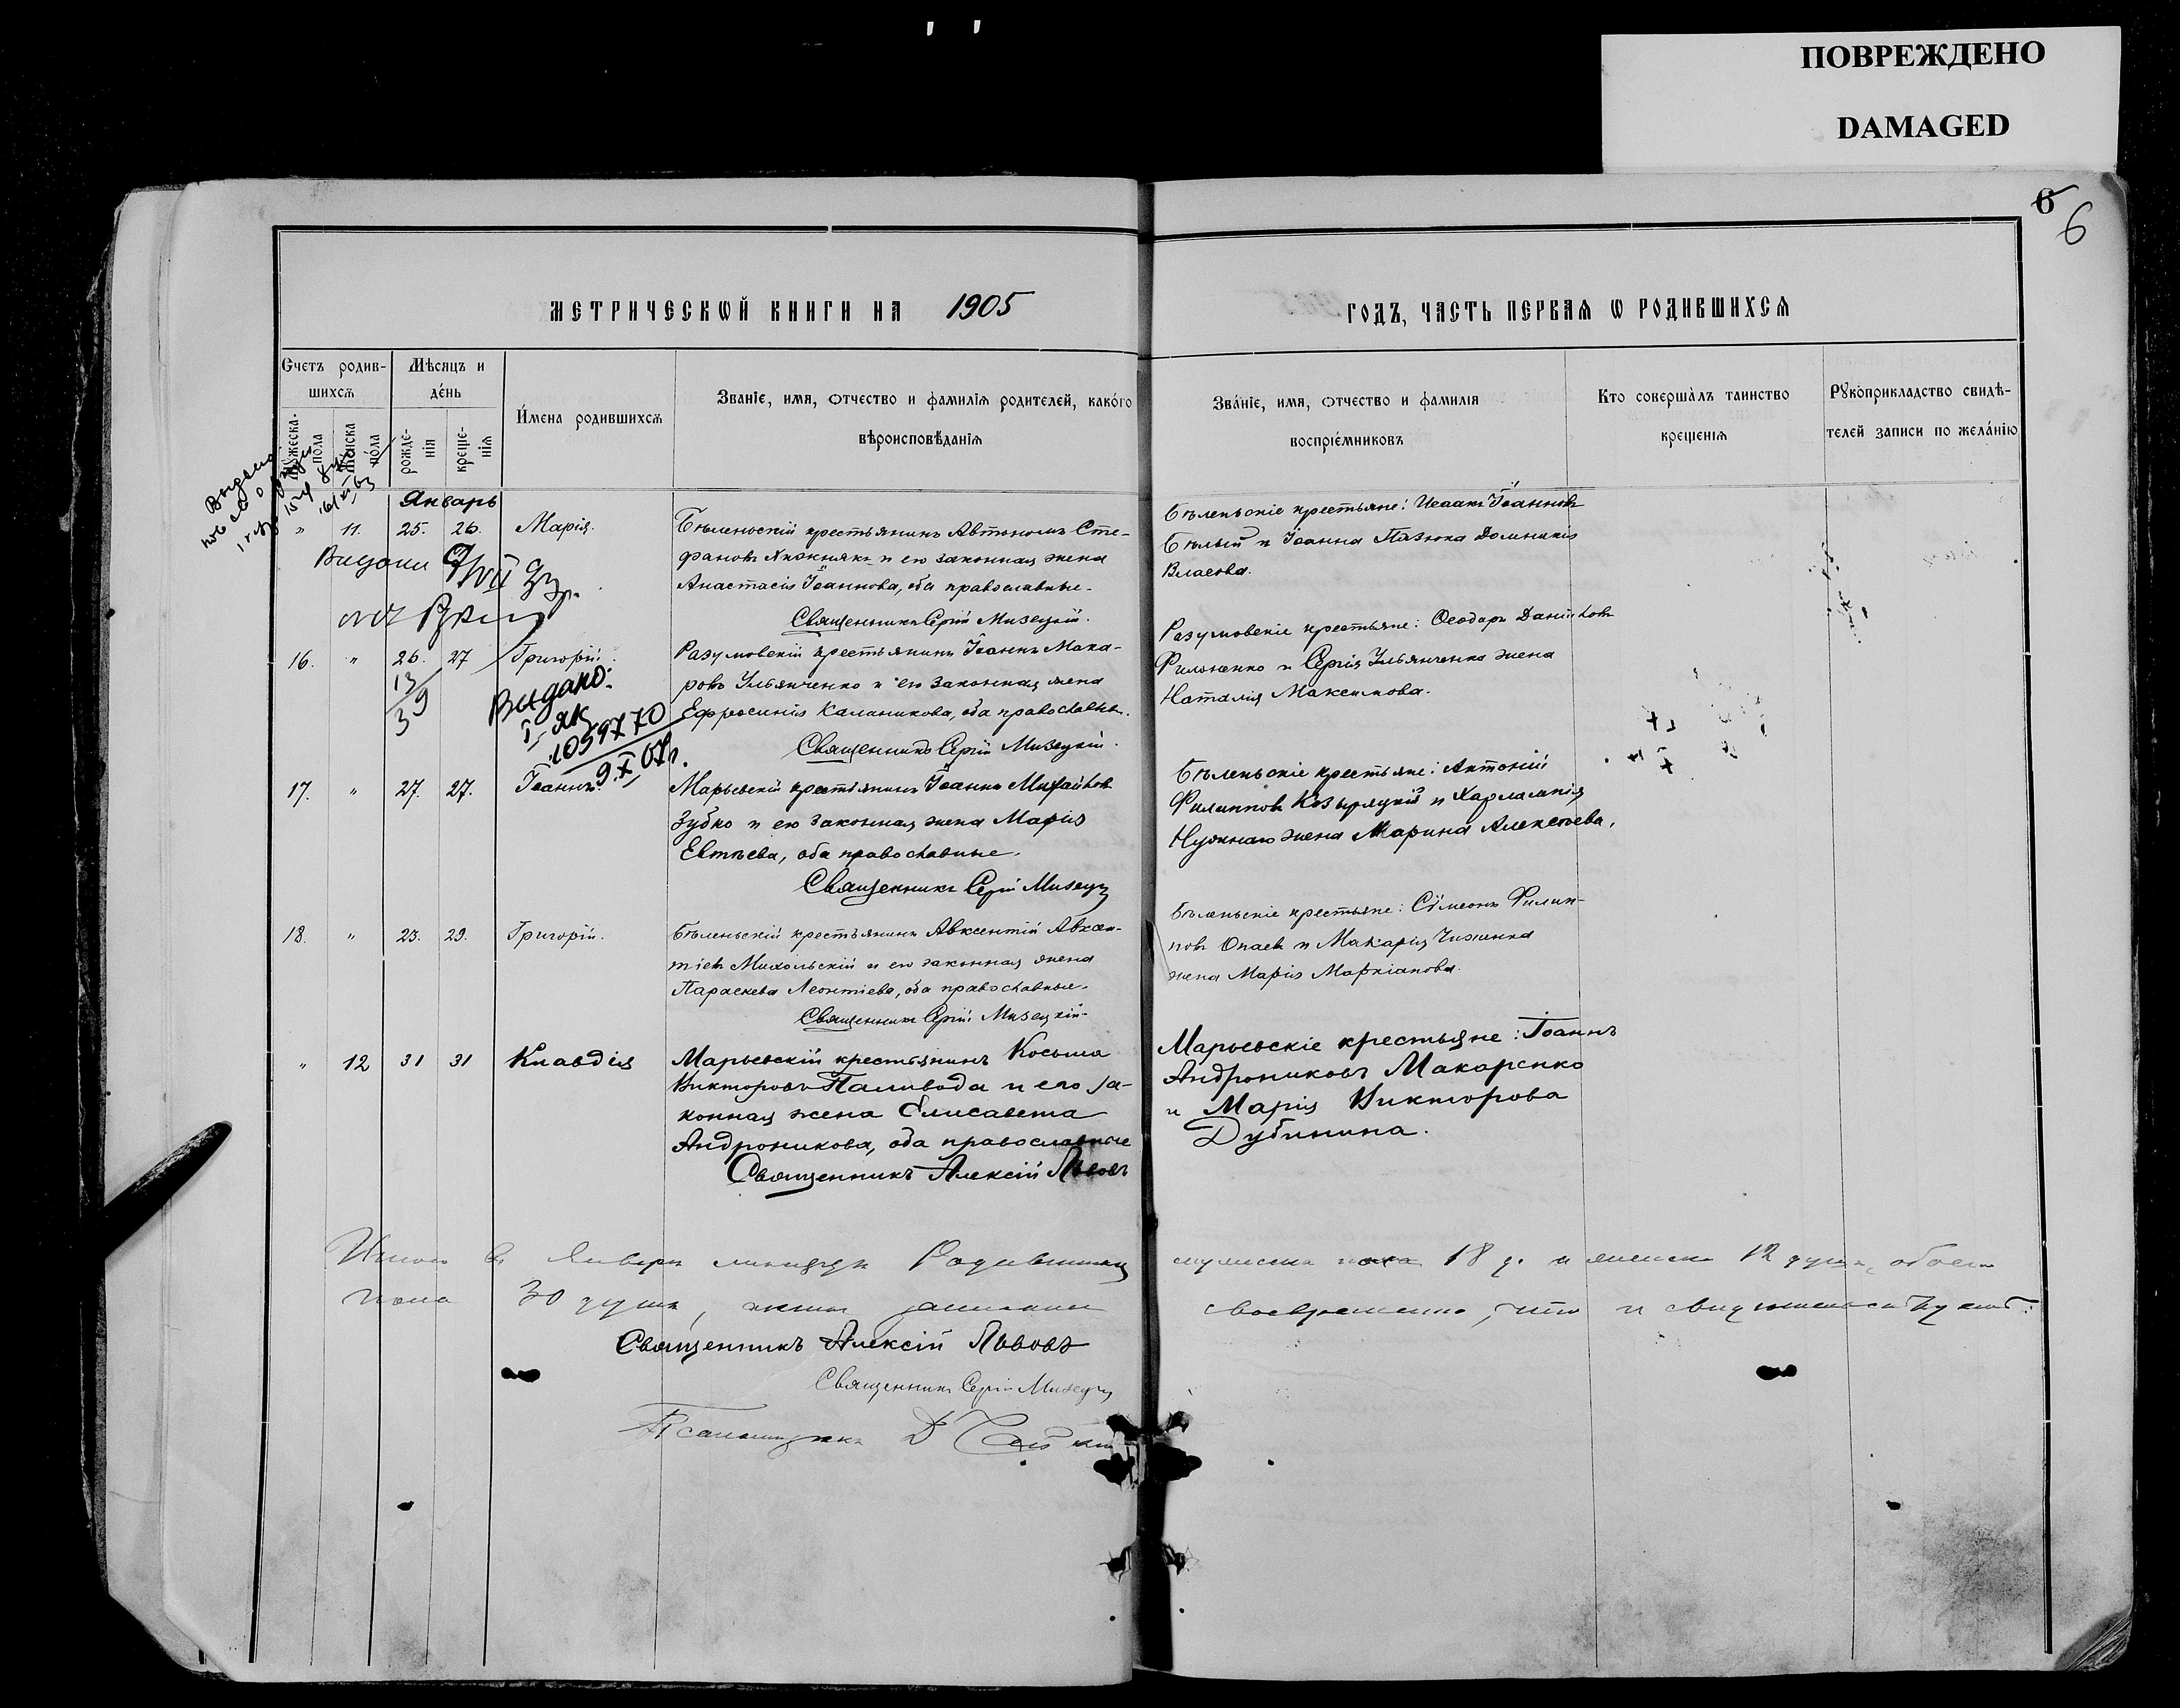 ПОВРЕЖДЕНО
DAMAGED
6
6
МЕТРИЧЕСКѠЙ КНИГИ НА 1905
ГОДЪ, ЧАСТЬ ПЕРВАЯ Ѡ РОДИВШИХСѦ
Счетъ родив-
шихсѧ
Мужеска
пола
Женска
пола
Мѣсяцъ и
де́нь
рожде-
нія
креще-
нія
И́мена родившихсѧ
Званіе, имя, ѻтчество и фамиліѧ родителей, како́го
вѣроисповѣ́даніѧ
Зва́ніе, имя, ѻтчество и фамилія
воспрїе́мниковъ
Кто соверша̀лъ таинство
крещенія
Рꙋкоприкладство свидѣ-
телей записи по жела́нію
Январь
" 11. 25. 26. Марія.
Бѣленьскій крестьянинъ Автономъ Сте-
фановъ и его законная жена
Анастасія Іоаннова, оба православные.
Священникъ Сергій Мизецкій.
Бѣленьскіе крестьяне: Исаакъ Іоанновъ
Бѣлый и Іоанна Пазюка Домникія
Власова.
Видано
16. " 26. 27 Григорій.
13
39
Разумовскій крестьянинъ Іоаннъ Мака-
ровъ Ульянченко и его законная жена
Ефросинія Каланикова, оба православн.
Священникъ Сергій Мизецкій.
Разумовскіе крестьяне: Ѳеодоръ Даніиловъ
Филоненко и Сергія Ульянченка жена
Наталія Максимова.
Видано.
I-ЯК
1059770
9.X 67г.
17. " 27. 27. Іоаннъ.
Марьевскій крестьянинъ Іоаннъ Михайлов
Зубко и его законная жена Марія
Евтѣева, оба православные.
Священникъ Сергій Мизецк
Бѣленьскіе крестьяне: Антоній
Филипповъ Козырацкій и Харлампія
Нужнаго жена Марина Алексѣева.
18. " 23. 29. Григорій.
Бѣленьскій крестьянинъ Авксентій Авксен-
тіевъ Михольскій и его законная жена
Параскева Леонтіева, оба православные.
Священникъ Сергій Мизецкій.
Бѣленьскіе крестьяне: Сѵмеонъ Филип-
повъ Опаев и Макарія Чиженка
жена Марія Маркіанова.
" 12 31 31 Клавдія
Марьевскій крестьянинъ Косьма
Викторовъ Паливода и его за-
конная жена Елисавета
Андроникова, оба православные
Священникъ Алексій Львовъ
Марьевскіе крестьяне: Іоаннъ
Андрониковъ Макаренко
и Марія Викторова
Дубинина.
Итого въ Январѣ мѣсяцѣ Родившихся мужеска пола 18 д. и женска 12 душъ, обоего
пола 30 душъ, записаны своевременно, что и свидѣтельствуемъ:
Священникъ Алексій Львовъ
Священникъ Сергій Мизецк
Псаломщикъ Д